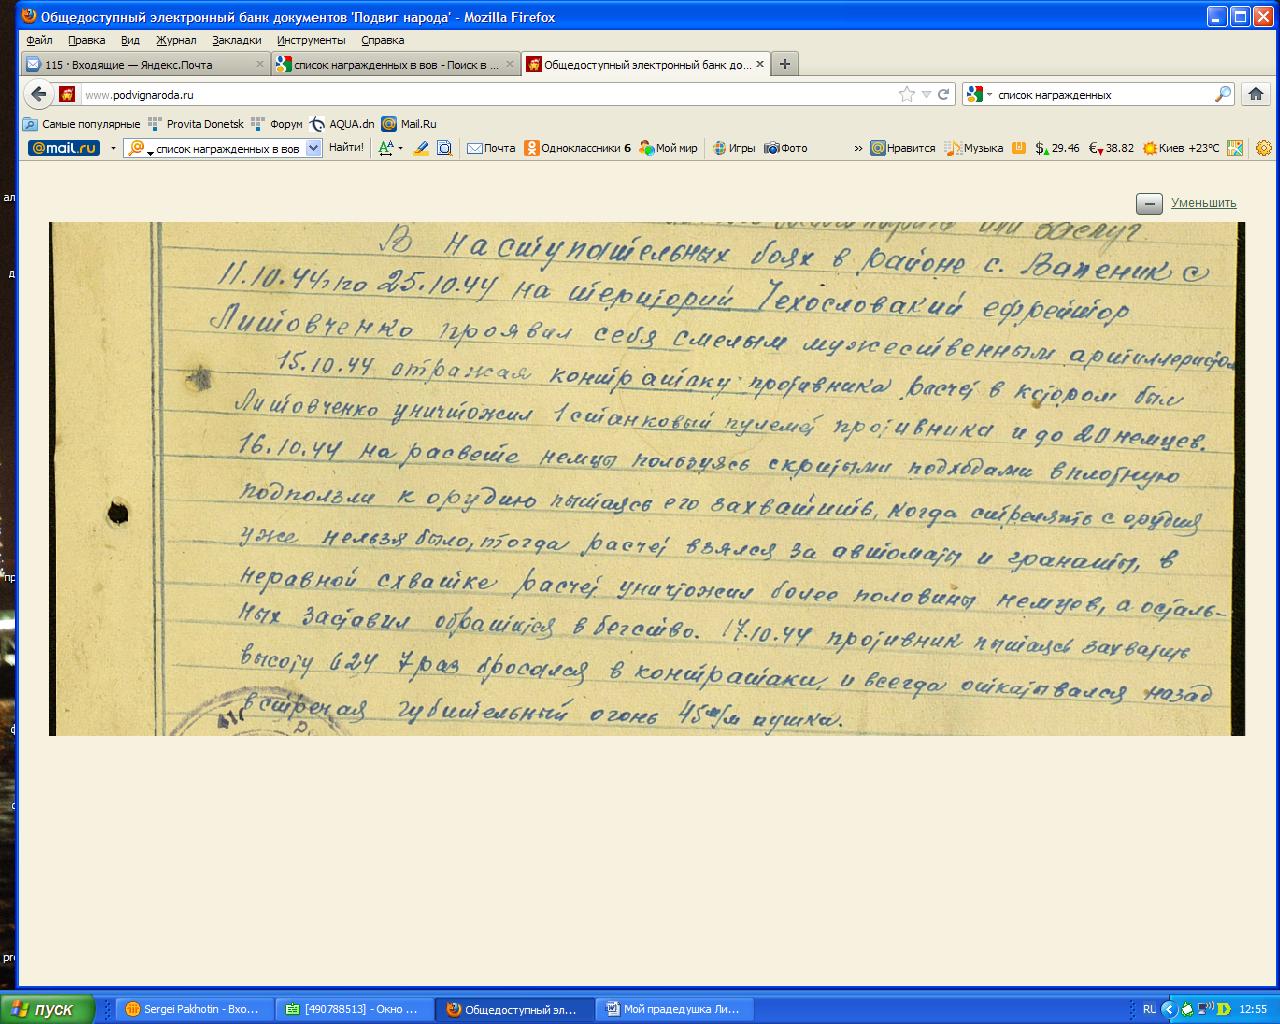 Общедоступный электронный банк документов 'Подвиг народа' - Mozilla Firefox
Файл Правка Вид Журнал Закладки Инструменты Справка
115 · Входящие — Яндекс.Почта список награжденных в вов - Поиск в ... Общедоступный электронный банк до...
www.podvignaroda.ru список награжденных
Самые популярные Provita Donetsk Форум AQUA.dn Mail.Ru
@mail.ru список награжденных в вов Найти! Почта Одноклассники 6 Мой мир Игры Фото » Нравится Музыка $ 29.46 € 38.82 Киев +23°C
Уменьшить
или заслуг.
В наступательных боях в районе с. Вапеник с
11.10.44 по 25.10.44 на територий Чехословакий ефрейтор
Литовченко проявил себя смелым мужественным артиллеристом
15.10.44 отражая контратаку противника расчет в котором был
Литовченко уничтожил 1 станковый пулемет противника и до 20 немцев.
16.10.44 на расвете немцы пользуясь скрытыми подходами вплотную
подползли к орудию пытаясь его захватить, когда стрелять с орудия
уже нельзя было, тогда расчет взялся за автоматы и гранаты, в
неравной схватке расчет уничтожил более половины немцев, а осталь-
ных заставил обратится в бегство. 17.10.44 противник пытаясь захватить
высоту 624 7 раз бросался в контратаки, и всегда откатывался назад
встречая губительный огонь 45 м/м пушка.
пуск Sergei Pakhotin - Вхо... [490788513] - Окно ... Общедоступный эл... Мой прадедушка Ли... RU 12:55